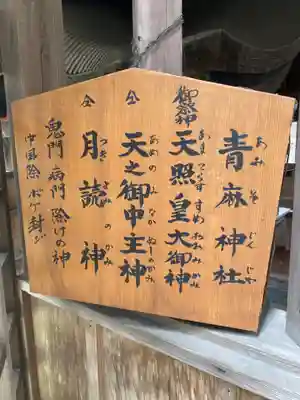 青麻神社
あおそじんじゃ
御祭神
天照皇大御神
あまてらすすめおおみかみ
仝
天之御中主神
あめのみなかぬしのかみ
仝
月読神
つきよみのかみ
鬼門 病門 除けの神